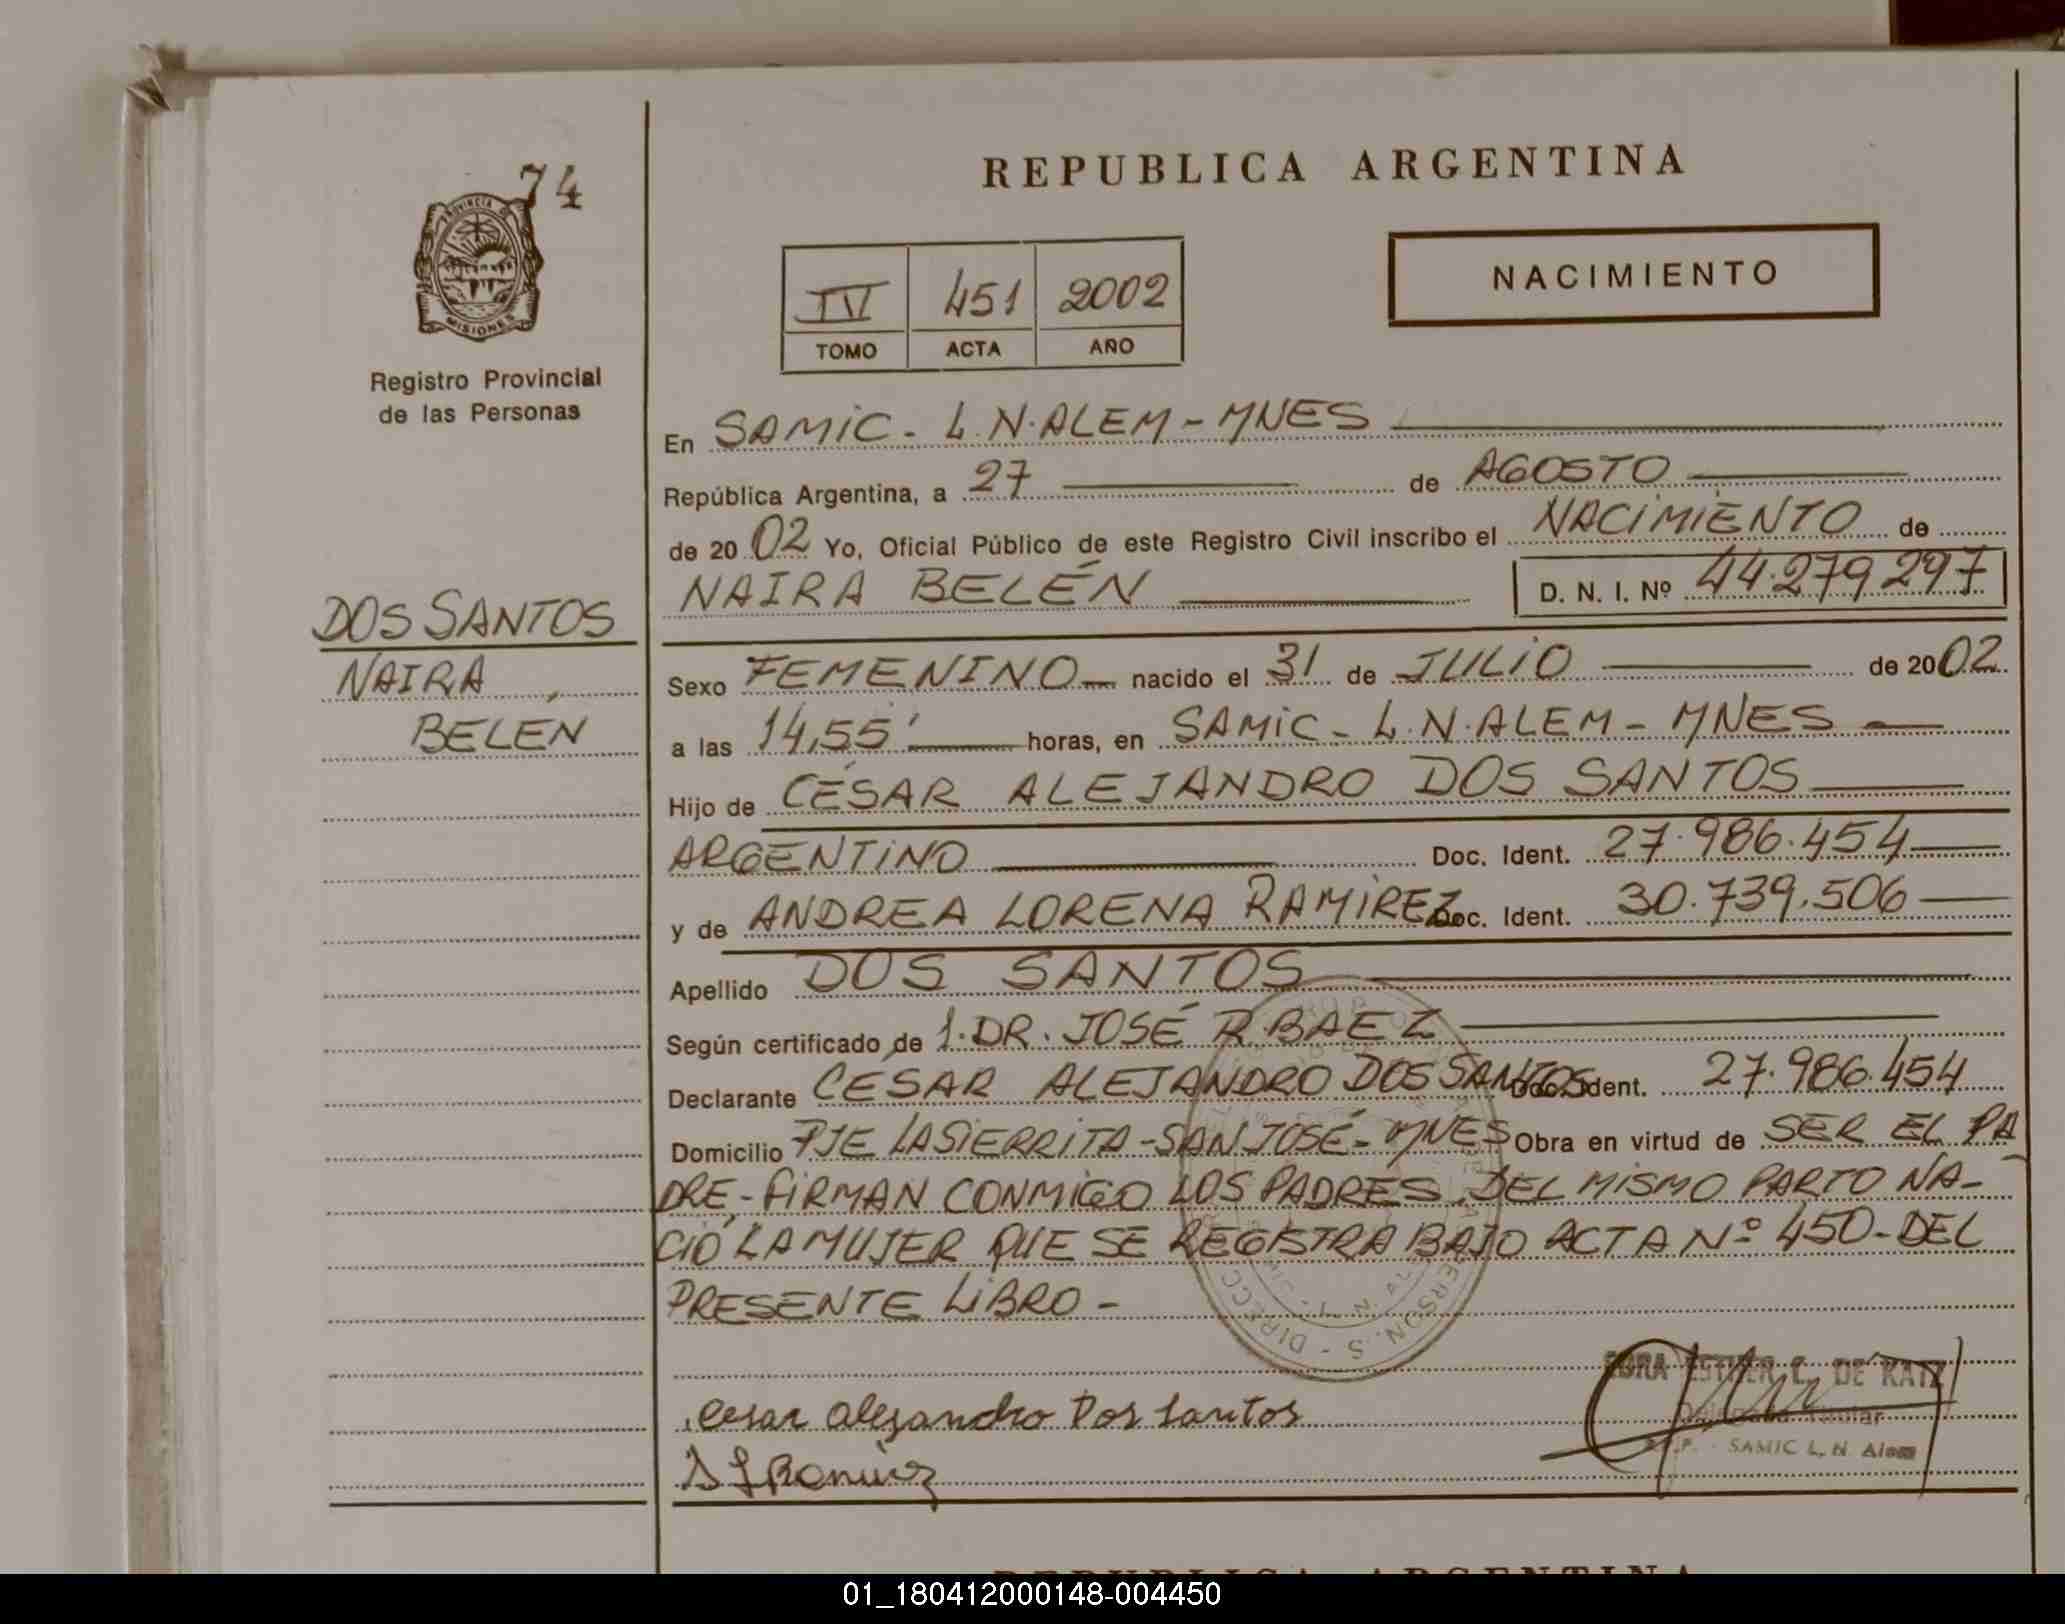 74
PROVINCIA DE
MISIONES
Registro Provincial
de las Personas
REPUBLICA ARGENTINA
IV 451 2002
TOMO ACTA AÑO
NACIMIENTO
En SAMIC - L.N.ALEM - MNES
República Argentina, a 27 de AGOSTO
de 2002 Yo, Oficial Público de este Registro Civil inscribo el NACIMIENTO de
NAIRA BELÉN D. N. I. Nº 44.279.297
DOS SANTOS
NAIRA,
BELÉN
Sexo FEMENINO nacido el 31 de JULIO de 2002
a las 14,55' horas, en SAMIC - L.N.ALEM - MNES
Hijo de CÉSAR ALEJANDRO DOS SANTOS
ARGENTINO Doc. Ident. 27.986.454
y de ANDREA LORENA RAMIREZ Doc. Ident. 30.739.506
Apellido DOS SANTOS
Según certificado de 1.DR. JOSÉ R.BAEZ
Declarante CÉSAR ALEJANDRO DOS SANTOS Doc. Ident. 27.986.454
Domicilio PJE LA SIERRITA - SAN JOSÉ - MNES Obra en virtud de SER EL PA
DRE - FIRMAN CONMIGO LOS PADRES. DEL MISMO PARTO NA-
CIÓ LA MUJER QUE SE REGISTRA BAJO ACTA Nº 450 - DEL
PRESENTE LIBRO -
ESTHER C. DE KATZ
Titular
SAMIC L. N. Alem
Cesar Alejandro Dos Santos
REPUBLICA ARGENTINA
01_180412000148-004450